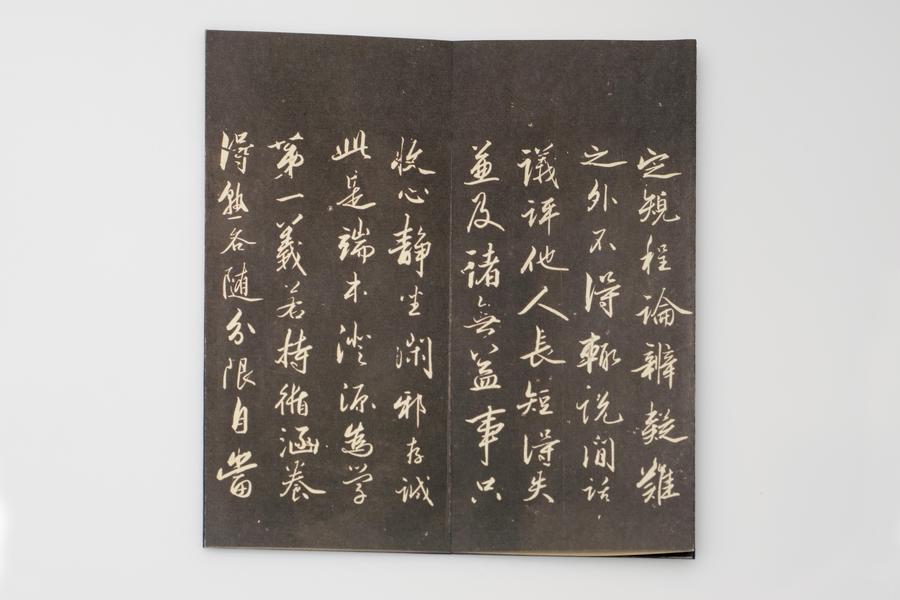 定規程論辨疑難
之外不得輒說閒話
議評他人長短得失
並及諸無益事只
收心靜坐閑邪存誠
此是端本澄源為學
第一義若持循涵養
得熟各隨分限自當